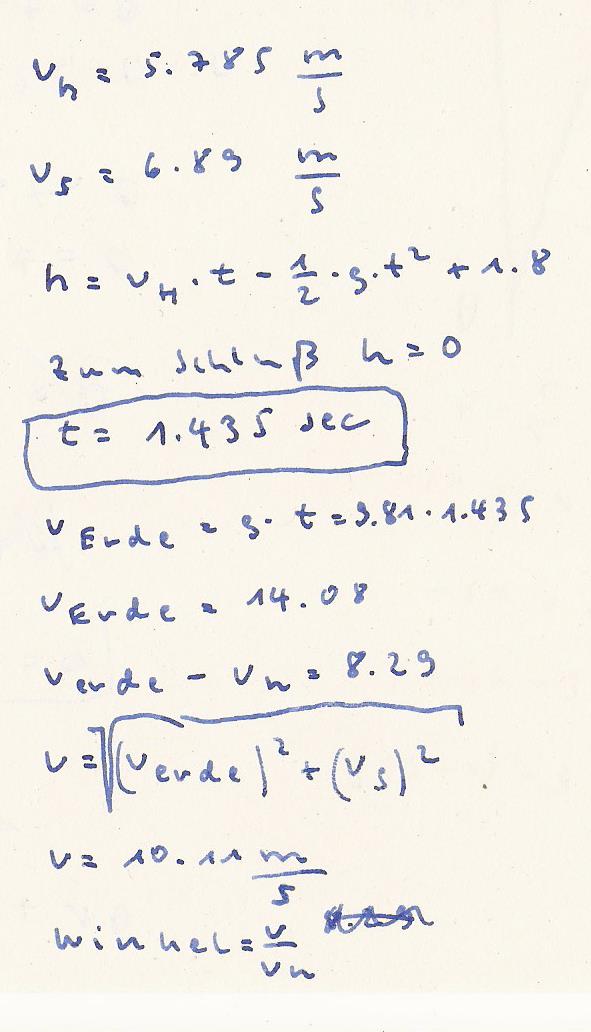 v_h = 5.785 m/s
v_s = 6.89 m/s
h = v_H · t - 1/2 · g · t² + 1.8
zum Schluß h = 0
t = 1.435 sec
v_Erde = g · t = 9.81 · 1.435
v_Erde = 14.08
v_erde - v_h = 8.29
v = √((v_erde)² + (v_s)²)
v = 10.11 m/s
Winkel = v/v_h